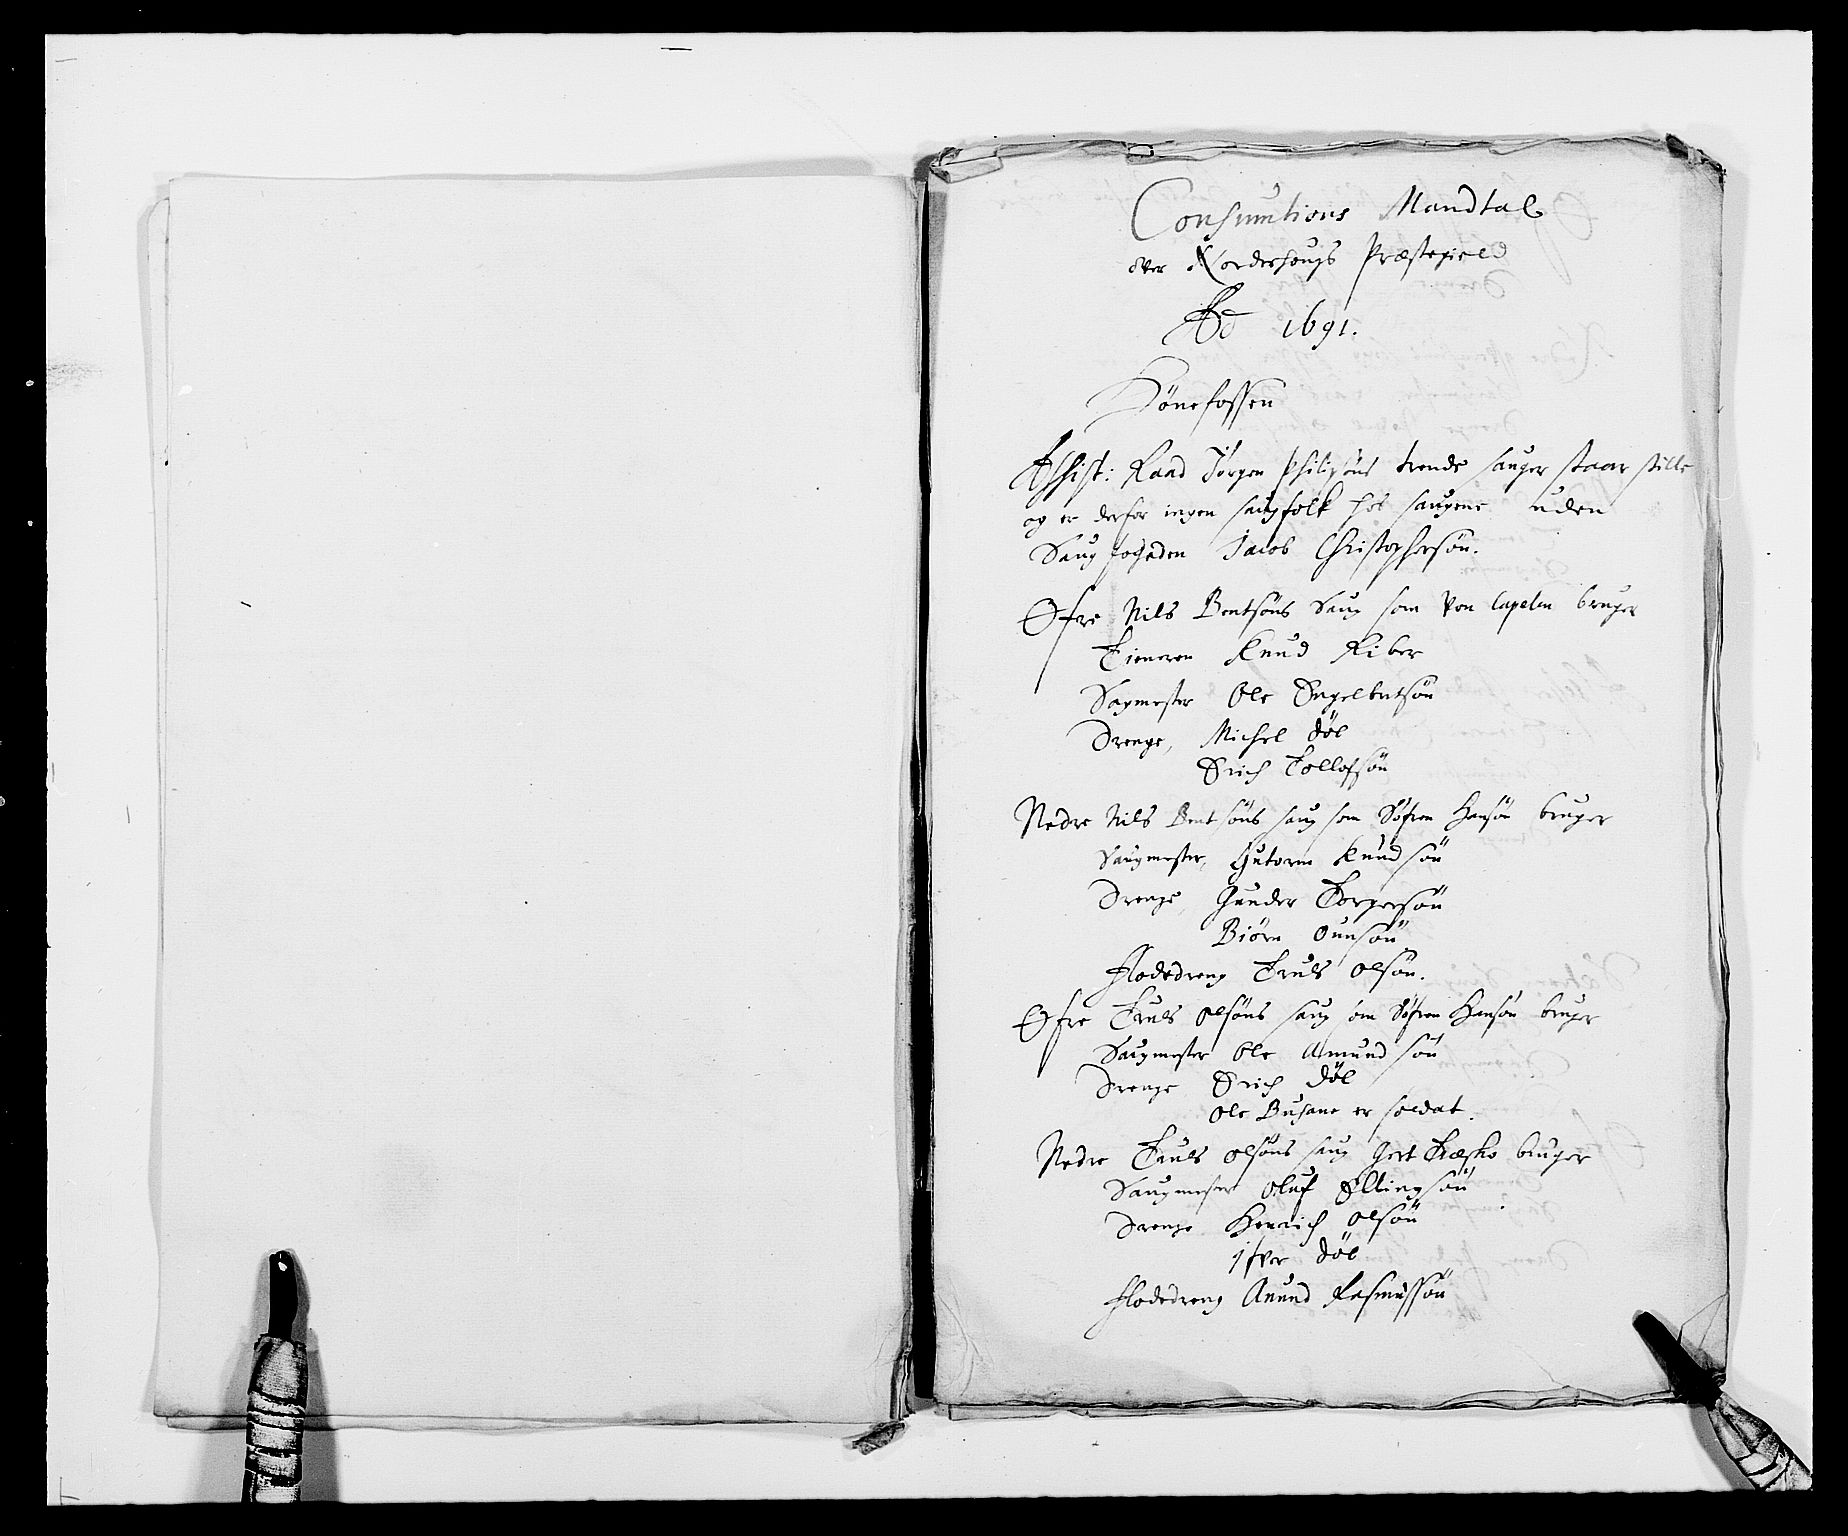 Consumtions Mandtal
over Norderhougs Præstegield
Ao 1691.
Hönefossen
Assist: Raad Jörgen Philipsöns trende sauger staar stille
og er derfor ingen saugfolk hos saugene uden
Saugfogeden Jacob Christophersön.
Öfre Nils Bentsöns Saug som Von Capelen bruger
Tieneren Knud Riber
Sagmester Ole Engelbretsön
Drenge, Michel Döl
Erich Tollofsön
Nedre Nils Bentsöns saug som Söfren Hansön bruger
Saugmester, Gutorm Knudsön
Drenge, Gunder Torgersön
Biörn Ounsön
Flodedreng Truls Olsön.
Öfre Truls Olsöns saug som Söfren Hansön bruger
Saugmester Ole Amundsön
Drenge Erich Döl
Ole Busane er soldat.
Nedre Truls Olsöns saug Gert bruger
Saugmester Oluf Ellingsön
Drenge Henrich Olsön
Ifver Döl
Flodedreng Anund Rasmussön